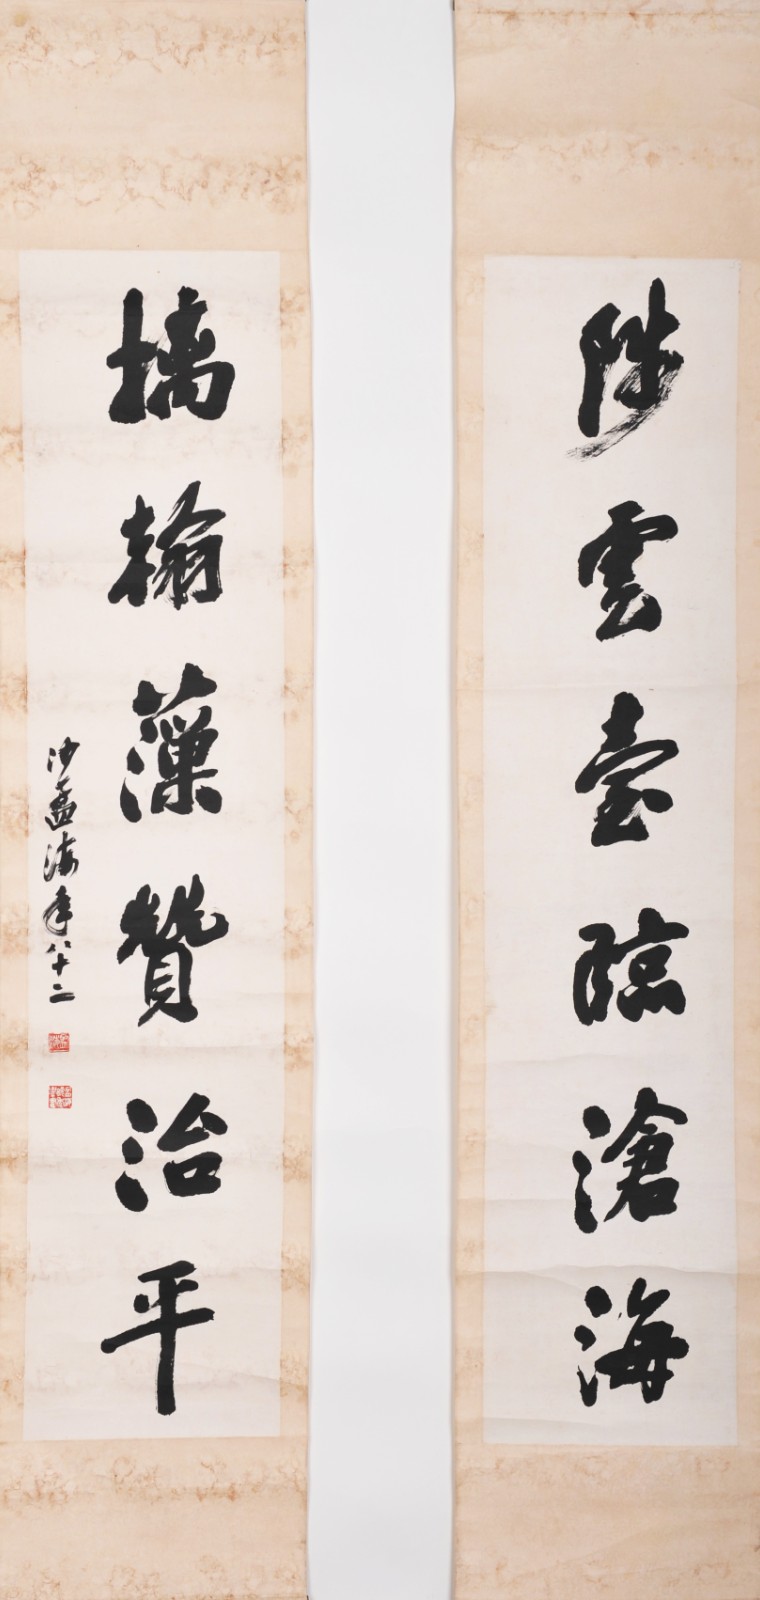 陟雲臺臨滄海
摛翰藻贊治平
沙孟海年八十二